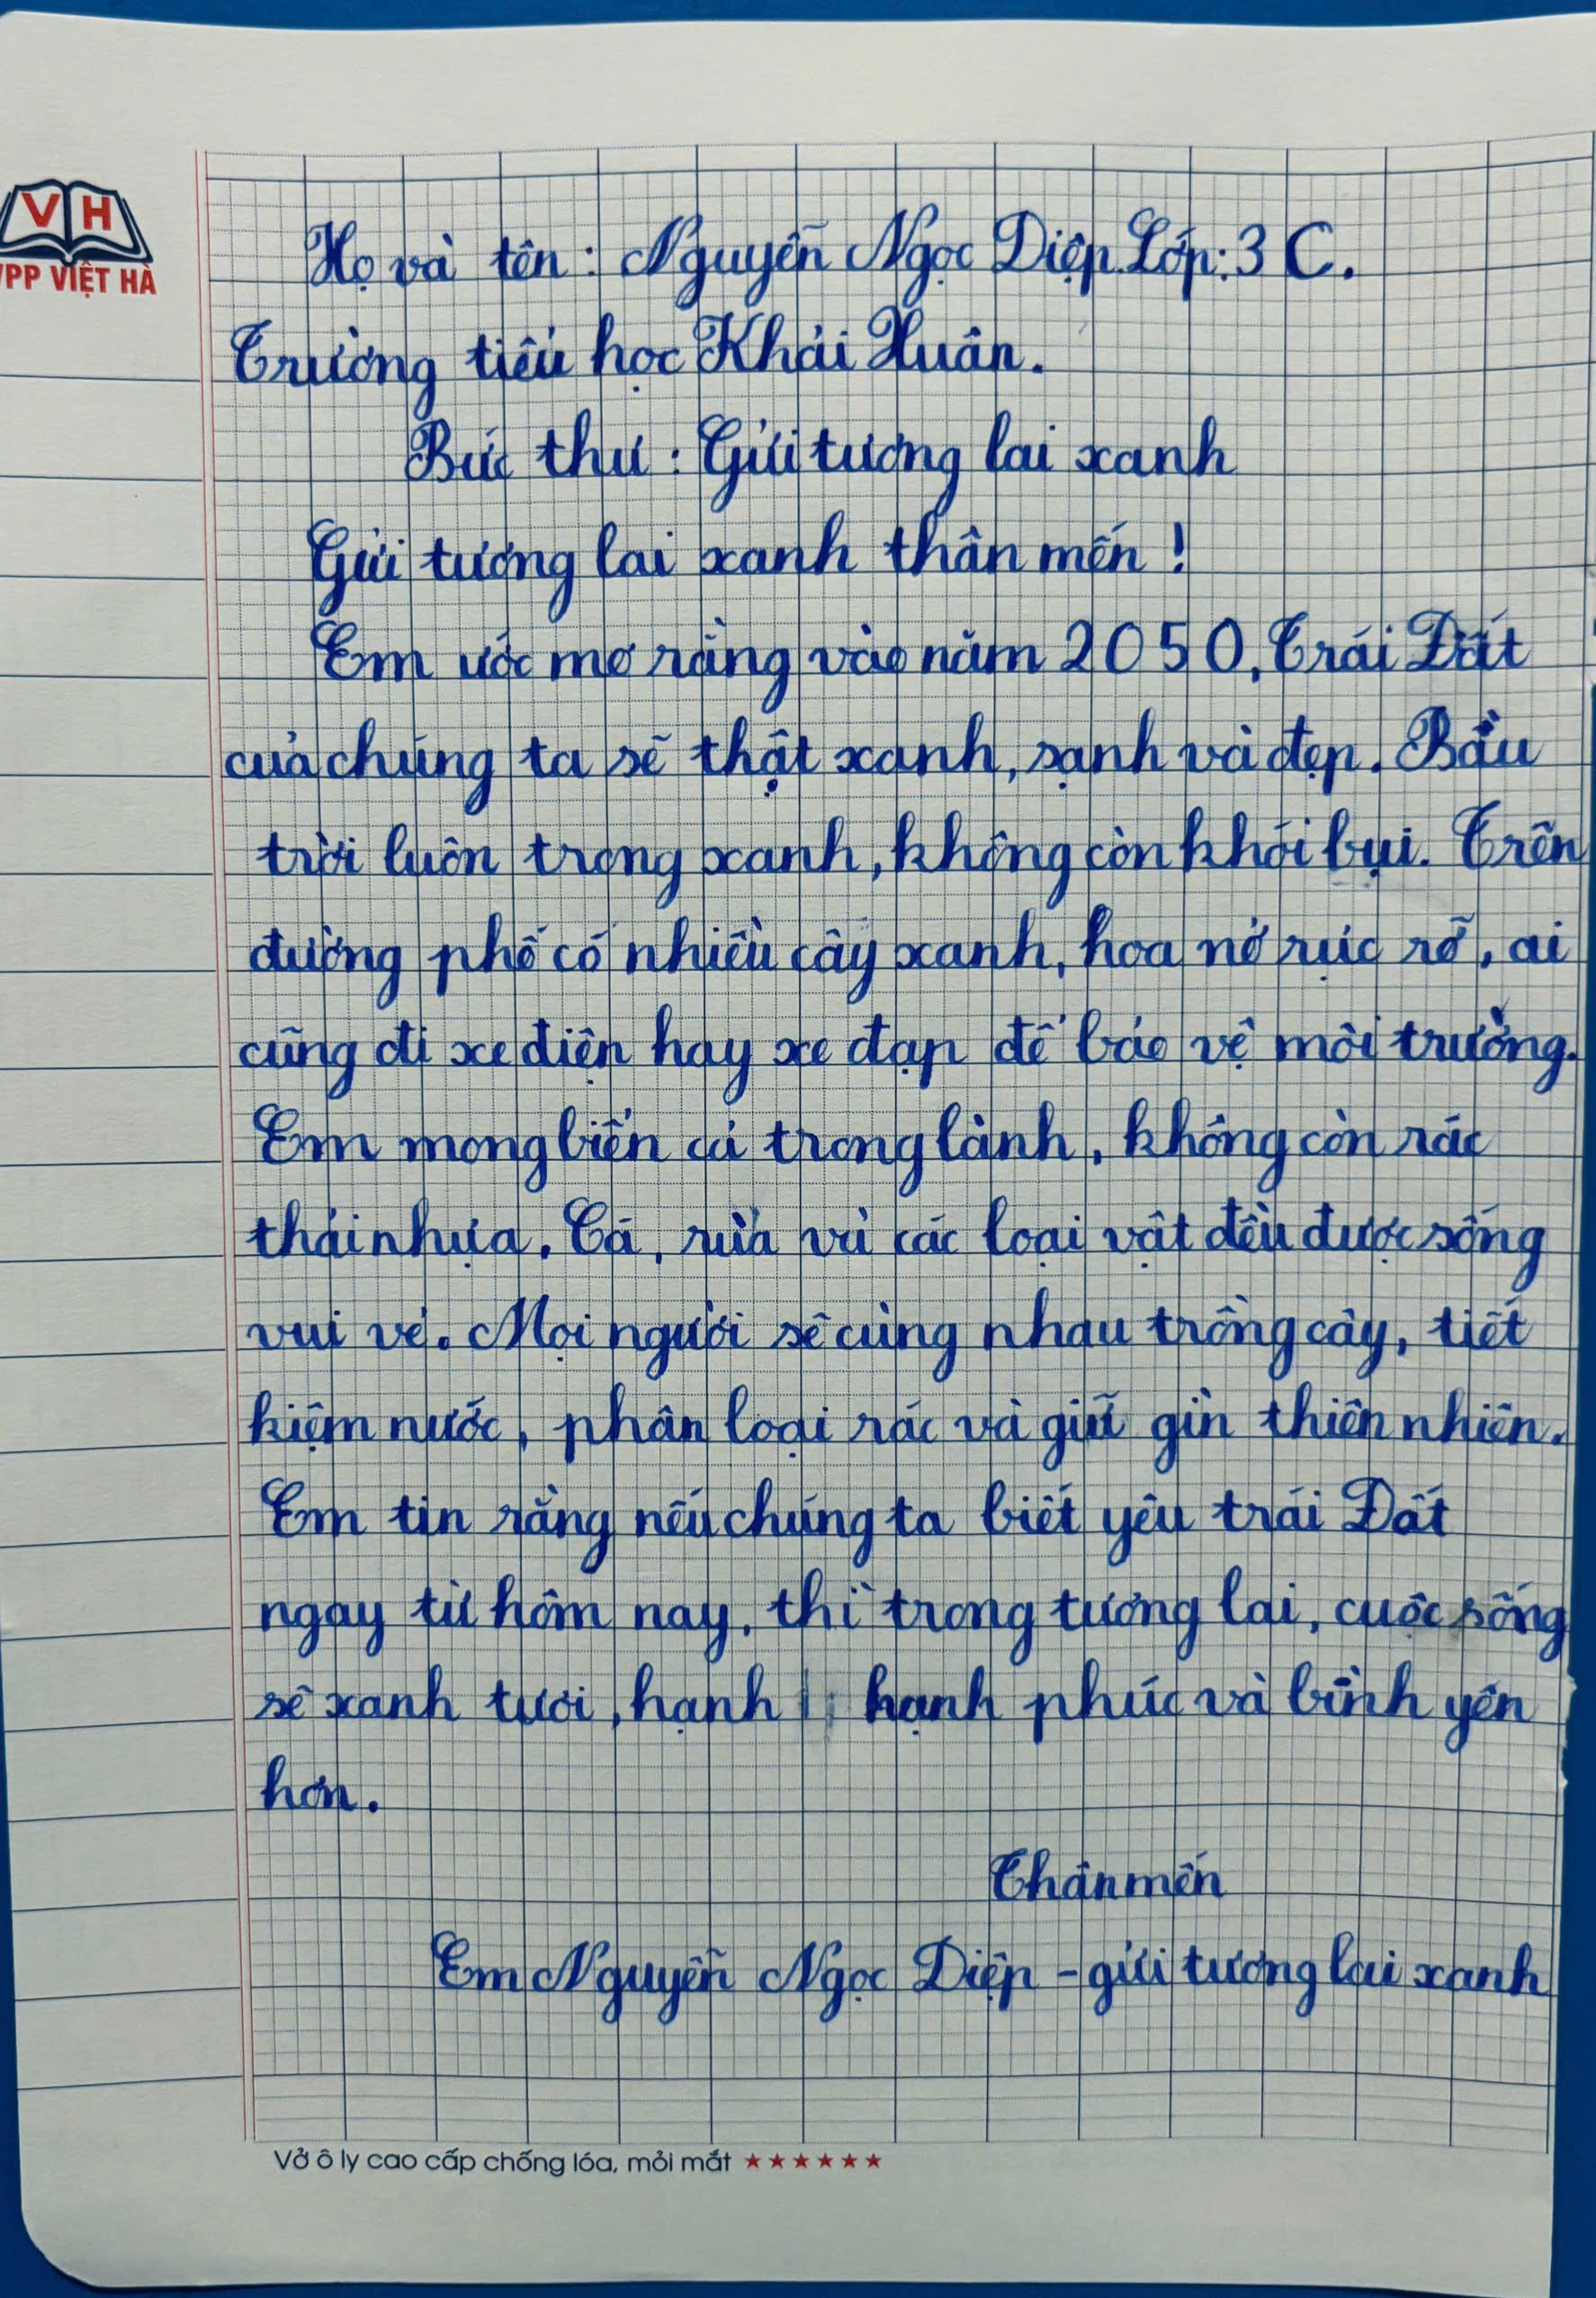 VH
VPP VIỆT HÀ
Họ và tên: Nguyễn Ngọc Diệp. Lớp: 3 C.
Trường tiểu học Khải Xuân.
Bức thư: Gửi tương lai xanh
Gửi tương lai xanh thân mến!
Em ước mơ rằng vào năm 2050, Trái Đất
của chúng ta sẽ thật xanh, sạnh và đẹp. Bầu
trời luôn trong xanh, không còn khói bụi. Trên
đường phố có nhiều cây xanh, hoa nở rực rỡ, ai
cũng đi xe điện hay xe đạp để bảo vệ môi trường.
Em mong biển cả trong lành, không còn rác
thải nhựa. Cá, rùa và các loại vật đều được sống
vui vẻ. Mọi người sẽ cùng nhau trồng cây, tiết
kiệm nước, phân loại rác và giữ gìn thiên nhiên.
Em tin rằng nếu chúng ta biết yêu trái Đất
ngay từ hôm nay, thì trong tương lai, cuộc sống
sẽ xanh tươi, hạnh hạnh phúc và bình yên
hơn.
Thân mến
Em Nguyễn Ngọc Diệp - gửi tương lai xanh
Vở ô ly cao cấp chống lóa, mỏi mắt ★★★★★★